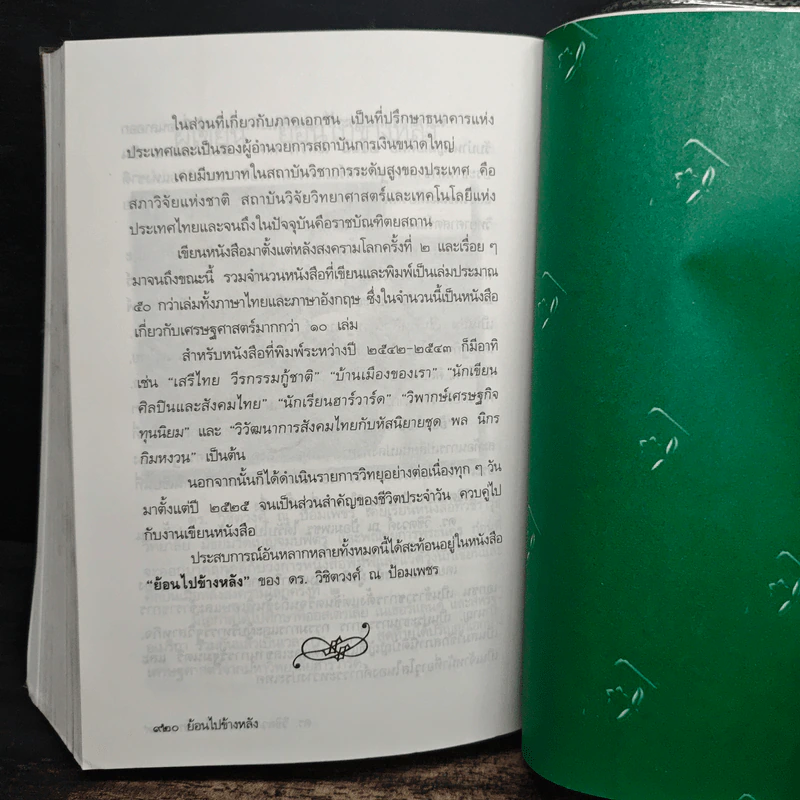 ในส่วนที่เกี่ยวกับภาคเอกชน เป็นที่ปรึกษาธนาคารแห่ง
ประเทศและเป็นรองผู้อำนวยการสถาบันการเงินขนาดใหญ่
เคยมีบทบาทในสถาบันวิชาการระดับสูงของประเทศ คือ
สภาวิจัยแห่งชาติ สถาบันวิจัยวิทยาศาสตร์และเทคโนโลยีแห่ง
ประเทศไทยและจนถึงในปัจจุบันคือราชบัณฑิตยสถาน
เขียนหนังสือมาตั้งแต่หลังสงครามโลกครั้งที่ ๒ และเรื่อย ๆ
มาจนถึงขณะนี้ รวมจำนวนหนังสือที่เขียนและพิมพ์เป็นเล่มประมาณ
๕๐ กว่าเล่มทั้งภาษาไทยและภาษาอังกฤษ ซึ่งในจำนวนนี้เป็นหนังสือ
เกี่ยวกับเศรษฐศาสตร์มากกว่า ๑๐ เล่ม
สำหรับหนังสือที่พิมพ์ระหว่างปี ๒๕๔๒-๒๕๔๓ ก็มีอาทิ
เช่น "เสรีไทย วีรกรรมกู้ชาติ" "บ้านเมืองของเรา" "นักเขียน
ศิลปินและสังคมไทย" "นักเรียนฮาร์วาร์ด" "วิพากษ์เศรษฐกิจ
ทุนนิยม" และ "วิวัฒนาการสังคมไทยกับหัสนิยายชุด พล นิกร
กิมหงวน" เป็นต้น
นอกจากนั้นก็ได้ดำเนินรายการวิทยุอย่างต่อเนื่องทุก ๆ วัน
มาตั้งแต่ปี ๒๕๒๕ จนเป็นส่วนสำคัญของชีวิตประจำวัน ควบคู่ไป
กับงานเขียนหนังสือ
ประสบการณ์อันหลากหลายทั้งหมดนี้ได้สะท้อนอยู่ในหนังสือ
"ย้อนไปข้างหลัง" ของ ดร. วิชิตวงศ์ ณ ป้อมเพชร
๙๒๐ ย้อนไปข้างหลัง